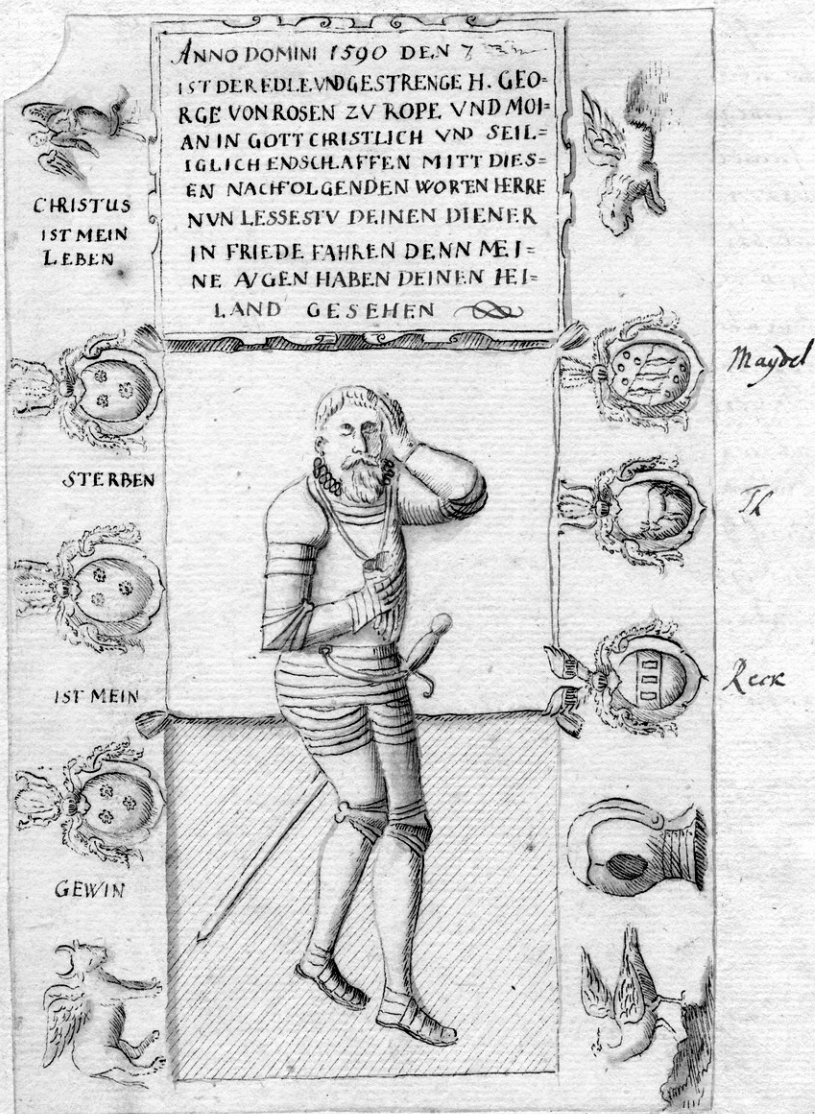 ANNO DOMINI 1590 DEN 7
IST DER EDLE VND GESTRENGE H. GEO=
RGE VON ROSEN ZV ROPE VND MOI=
AN IN GOTT CHRISTLICH VND SEIL=
IGLICH ENDSCHLAFFEN MITT DIES=
EN NACHFOLGENDEN WORTEN HERRE
NVN LESSESTV DEINEN DIENER
IN FRIEDE FAHREN DENN MEI=
NE AVGEN HABEN DEINEN HEI=
LAND GESEHEN
CHRISTUS
IST MEIN
LEBEN
STERBEN
IST MEIN
GEWIN
Maydel
Reck